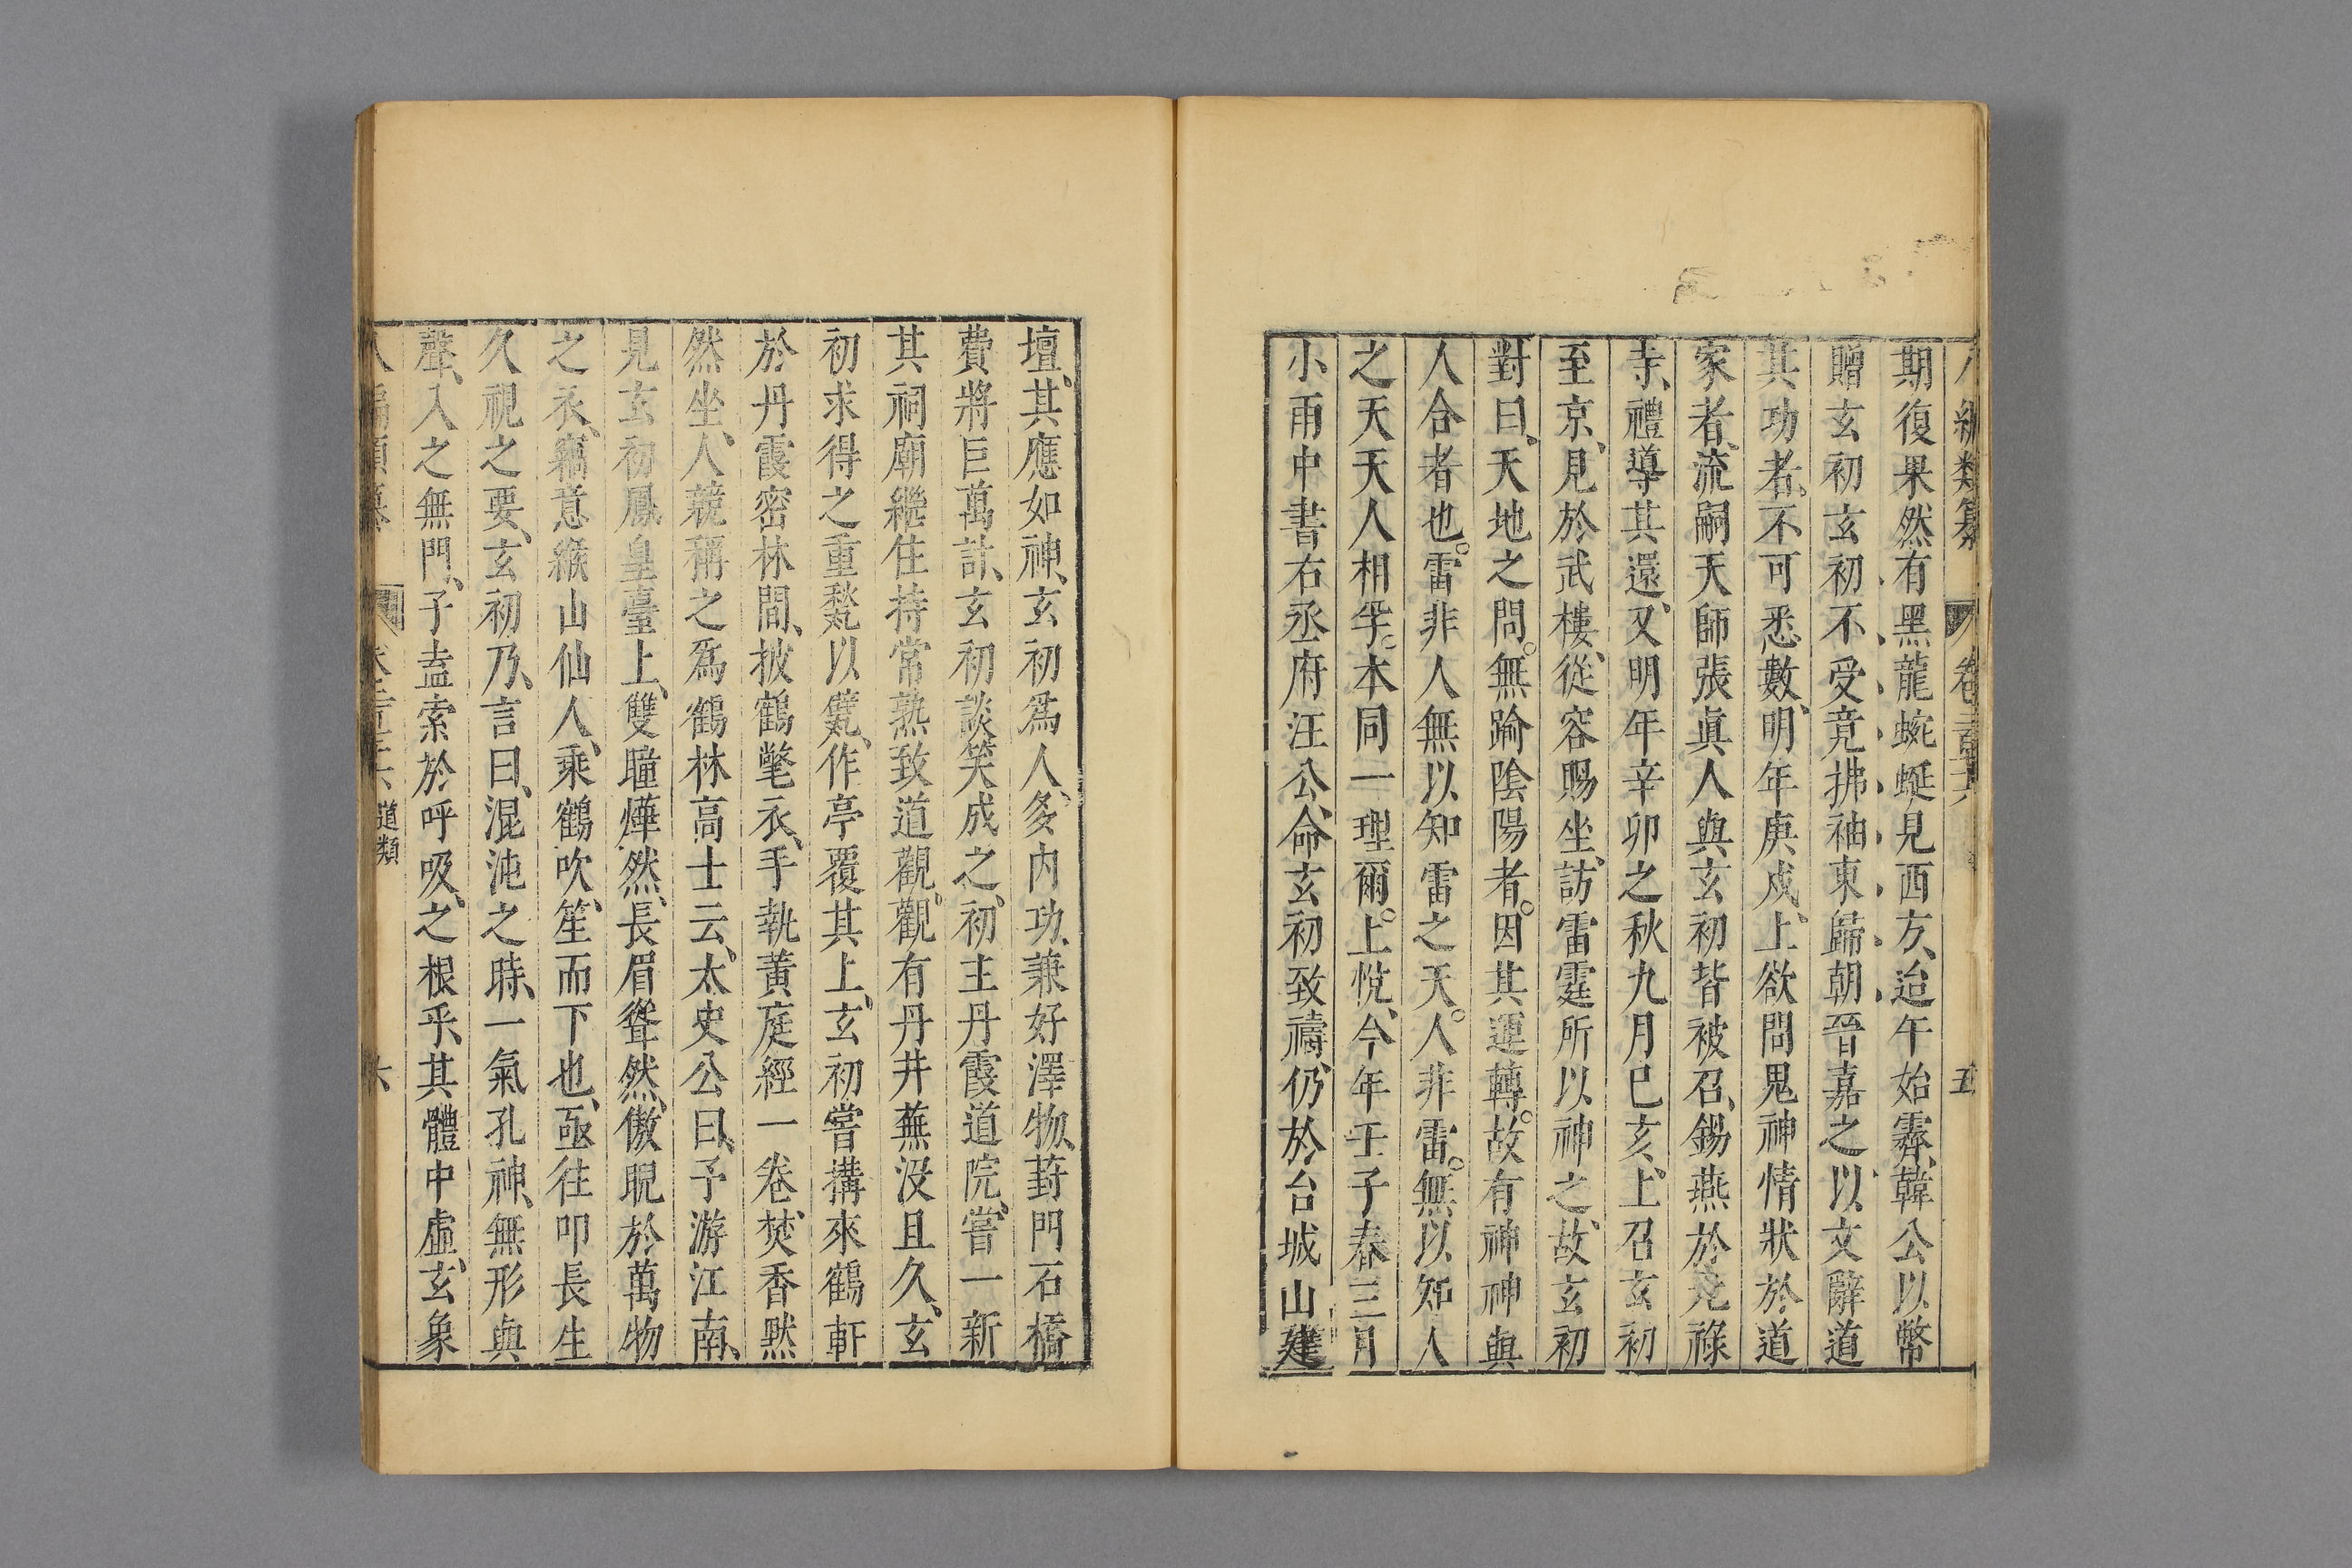 八編類纂 卷二百十六 五
期復果然有黑龍蜿蜒見西方、迨午始霽、韓公以幣
贈玄初玄初、不、受、竟、拂、袖、東、歸、朝、晉嘉之以文辭道
其功者。不可悉數、明年庚戌、上欲問鬼神情狀於道
家者、流嗣天師張眞人與玄初皆被召、錫燕於光祿
寺、禮導其還、又明年辛卯之秋九月巳亥、上召玄初
至京、見於武樓、從容賜坐、訪雷霆所以神之、故玄初
對曰、天地之間。無踰陰陽者。因其運轉。故有神神與
人合者也。雷非人無以知雷之天。人非雷。無以知人
之天天人相孚。本同一理爾。上悅、今年壬子春三月
小雨中書右丞府汪公、命玄初致禱、仍於台城山建
壇、其應如神、玄初爲人、多内功、兼好澤物、葑門石橋
費將巨萬計、玄初談笑成之、初主丹霞道院、嘗一新
其祠廟繼住持常熟致道觀。觀有丹井蕪没且久、玄
初求得之重甃以甓、作亭覆其上、玄初嘗搆來鶴軒
於丹霞密林間、披鶴氅衣、手執黃庭經一卷、焚香默
然坐、人競稱之爲鶴林高士云、太史公曰、予游江南、
見玄初鳳皇臺上、雙瞳煒然、長眉聳然、傲睨於萬物
之表、竊意緱山仙人、乘鶴吹、笙而下也、亟往叩長生
久視之要、玄初乃、言曰、混沌之時、一氣孔神、無形與
聲、入之無門、子盍索於呼吸、之根乎、其體中虛、玄象
道類 六